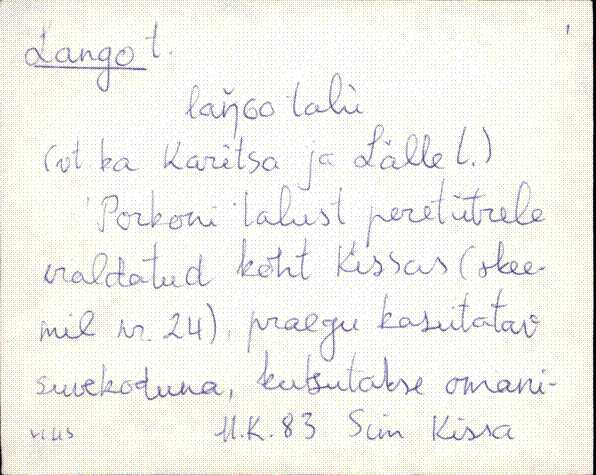 Lango t.
laŋ̆ɢo talu
(vt ka Karitsa ja Lälle t.)
Porkoni talust peretütrele
eraldatud koht Kissas (skee-
mil nr. 24), praegu kasutatav
suvekoduna, kutsutakse omani-
M.K. 83 Sim Kissa